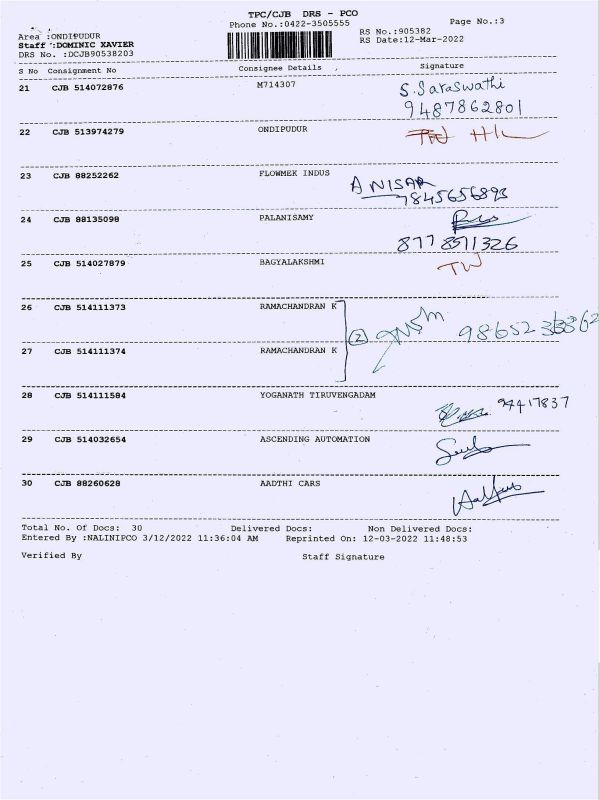 TPC/CJB DRS - PCO
Phone No.:0422-3505555
Page No.:3
Area :ONDIPUDUR
Staff :DOMINIC XAVIER
DRS No. :DCJB90538203
RS No.:905382
RS Date:12-Mar-2022
S No Consignment No Consignee Details Signature
21 CJB 514072876 M714307 S. Saraswathi
9487862801
22 CJB 513974279 ONDIPUDUR
23 CJB 88252262 FLOWMEK INDUS A NISAR
7845656893
24 CJB 88135098 PALANISAMY
8778591326
25 CJB 514027879 BAGYALAKSHMI TW
26 CJB 514111373 RAMACHANDRAN K
2
27 CJB 514111374 RAMACHANDRAN K
28 CJB 514111584 YOGANATH TIRUVENGADAM
94417837
29 CJB 514032654 ASCENDING AUTOMATION
30 CJB 88260628 AADTHI CARS
Total No. Of Docs: 30 Delivered Docs: Non Delivered Docs:
Entered By :NALINIPCO 3/12/2022 11:36:04 AM Reprinted On: 12-03-2022 11:48:53
Verified By Staff Signature